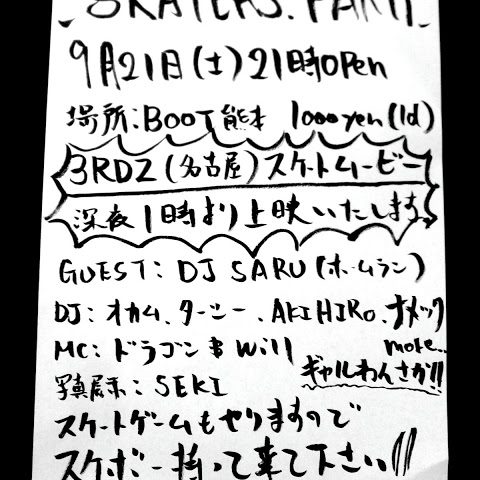 SKATERS. PARTY
9月21日(土)21時OPEN
場所:BOOT熊本 1000yen(1d)
3RDZ(名古屋)スケートムービー
深夜1時より上映いたします。
GUEST: DJ SARU(ホームラン)
DJ: オカム、ターシー、AKIHIRO、ナメック
more...
MC: ドラゴン & Will
ギャルわんさか!!
写真展示: SEKI
スケートゲームもやりますので
スケボー持って来て下さい!!